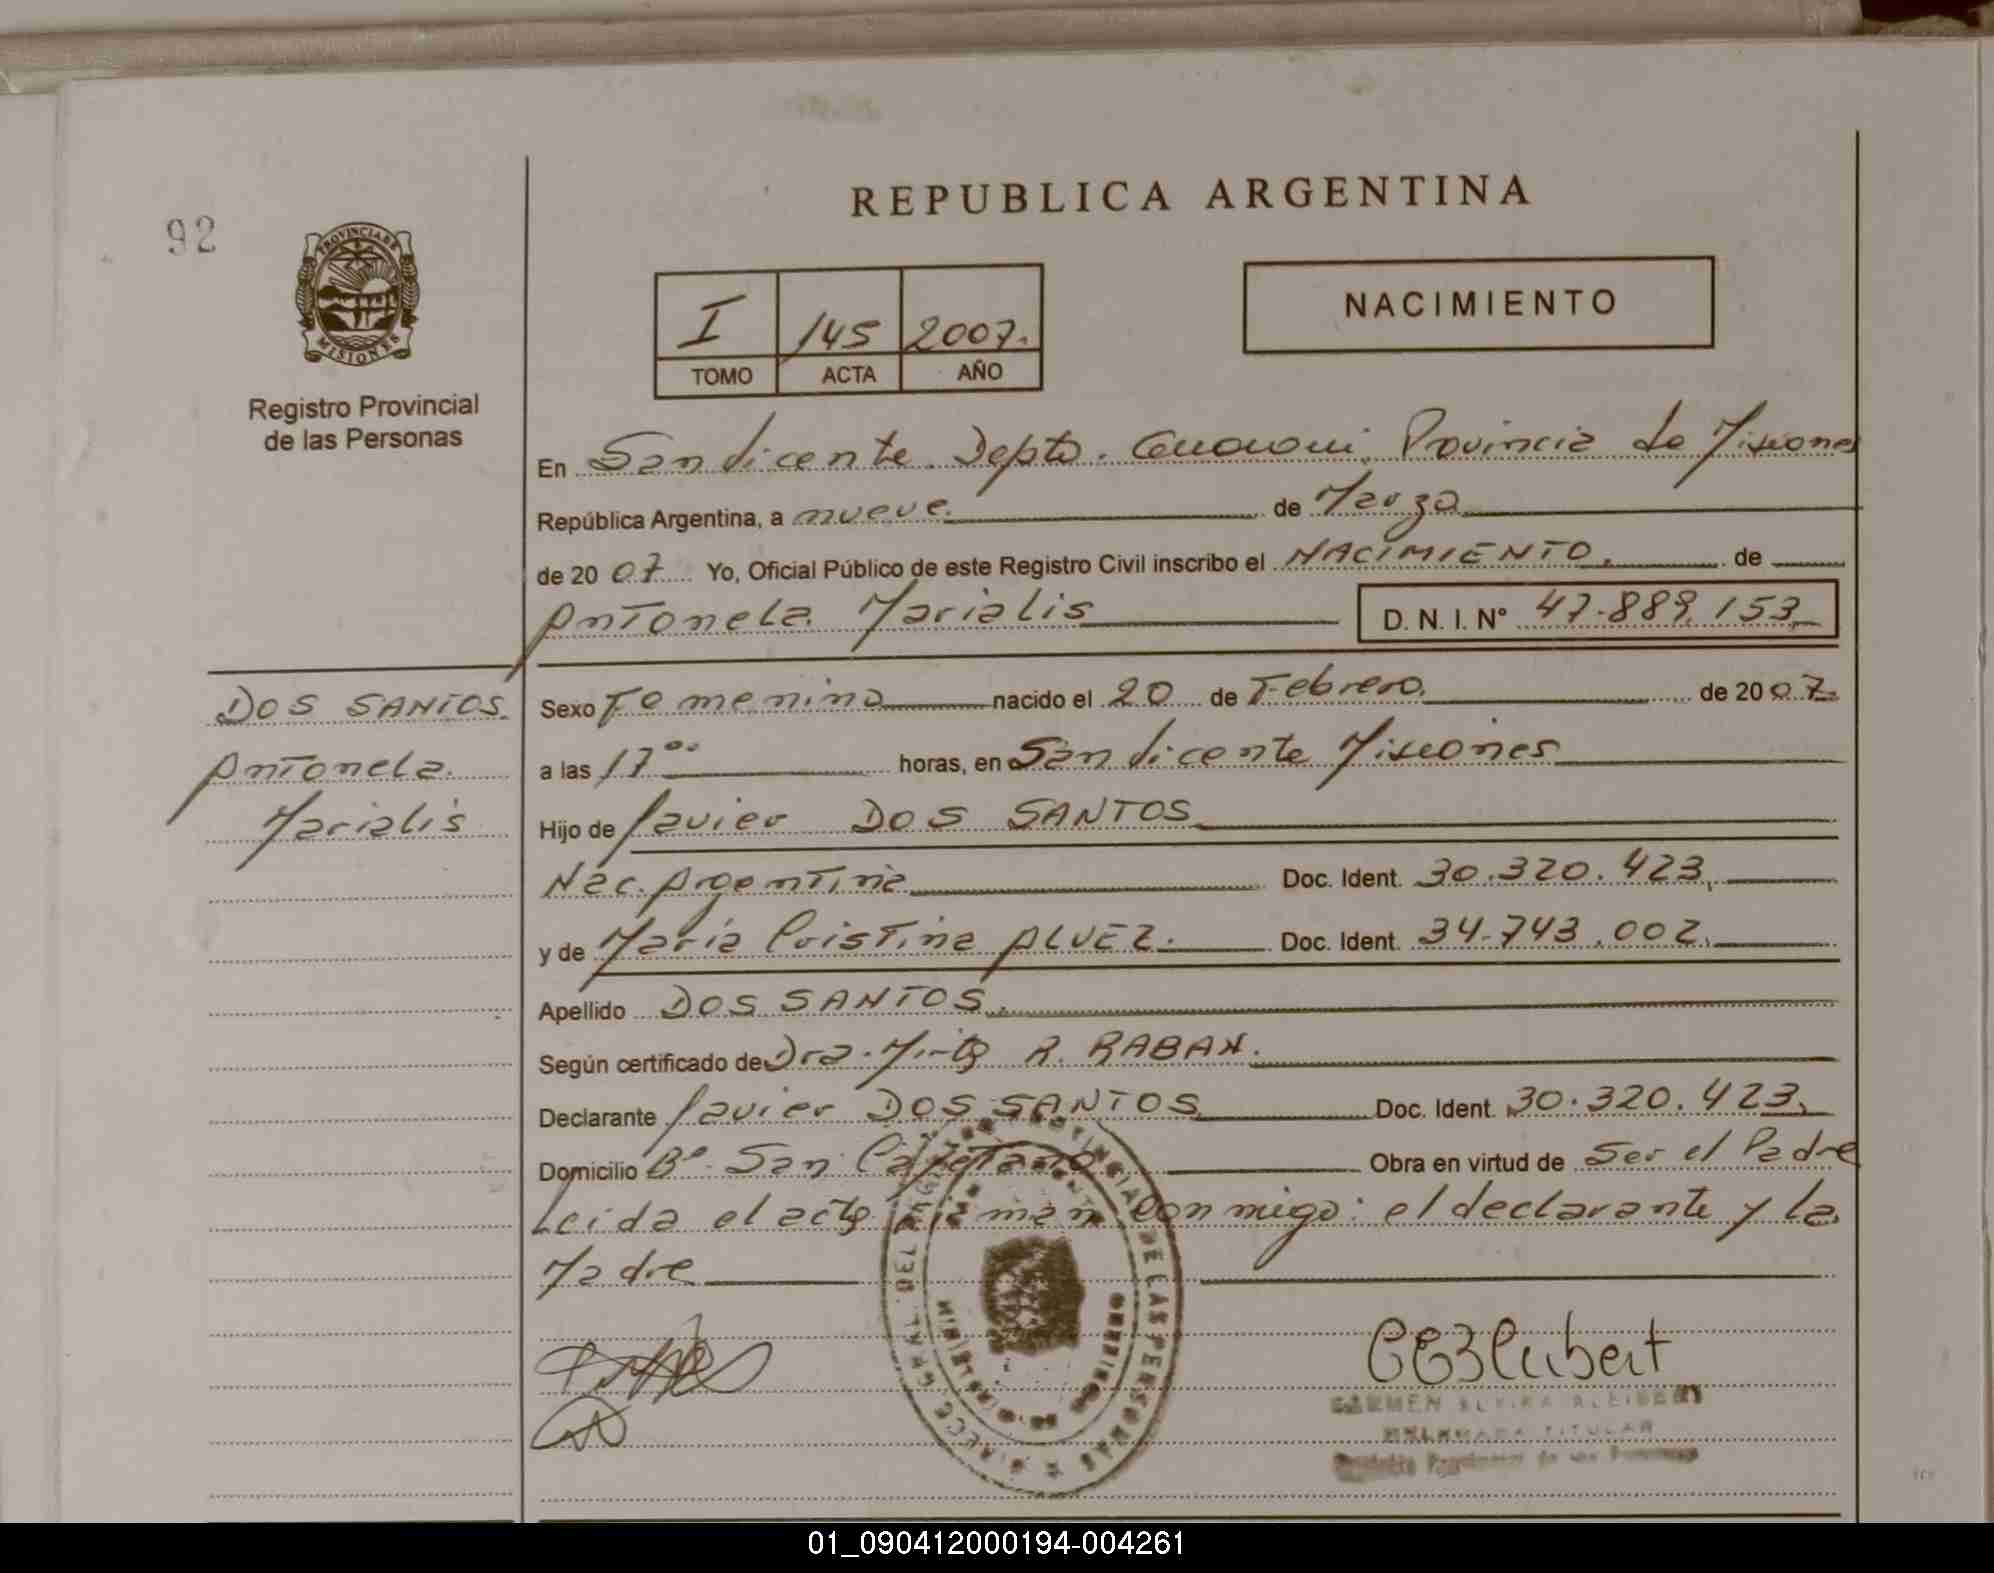 REPUBLICA ARGENTINA
92
PROVINCIA DE
MISIONES
Registro Provincial
de las Personas
NACIMIENTO
I 145 2007.
TOMO ACTA AÑO
En San Vicente. Depto. Guarani. Provincia de Misiones
República Argentina, a nueve. de Marzo
de 2007 Yo, Oficial Público de este Registro Civil inscribo el NACIMIENTO. de
Antonela Marialis D. N. I. Nº 47.889.153
DOS SANTOS.
Antonela.
Marialis
Sexo Femenino nacido el 20 de Febrero. de 2007.
a las 17⁰⁰ horas, en San Vicente Misiones
Hijo de Javier DOS SANTOS
Nac. Argentina Doc. Ident. 30.320.423,
y de Maria Cristina ALVEZ. Doc. Ident. 34.743.002.
Apellido DOS SANTOS.
Según certificado de Dra. Mirta R. RABAN.
Declarante Javier DOS SANTOS Doc. Ident. 30.320.423,
Domicilio Bº San Cayetano Obra en virtud de Ser el Padre
Leida el acta firman conmigo: el declarante y la
Madre
DIRECC GRAL. DEL REGISTRO PROVINCIAL DE LAS PERSONAS
CARMEN ELVIRA
TITULAR
01_090412000194-004261